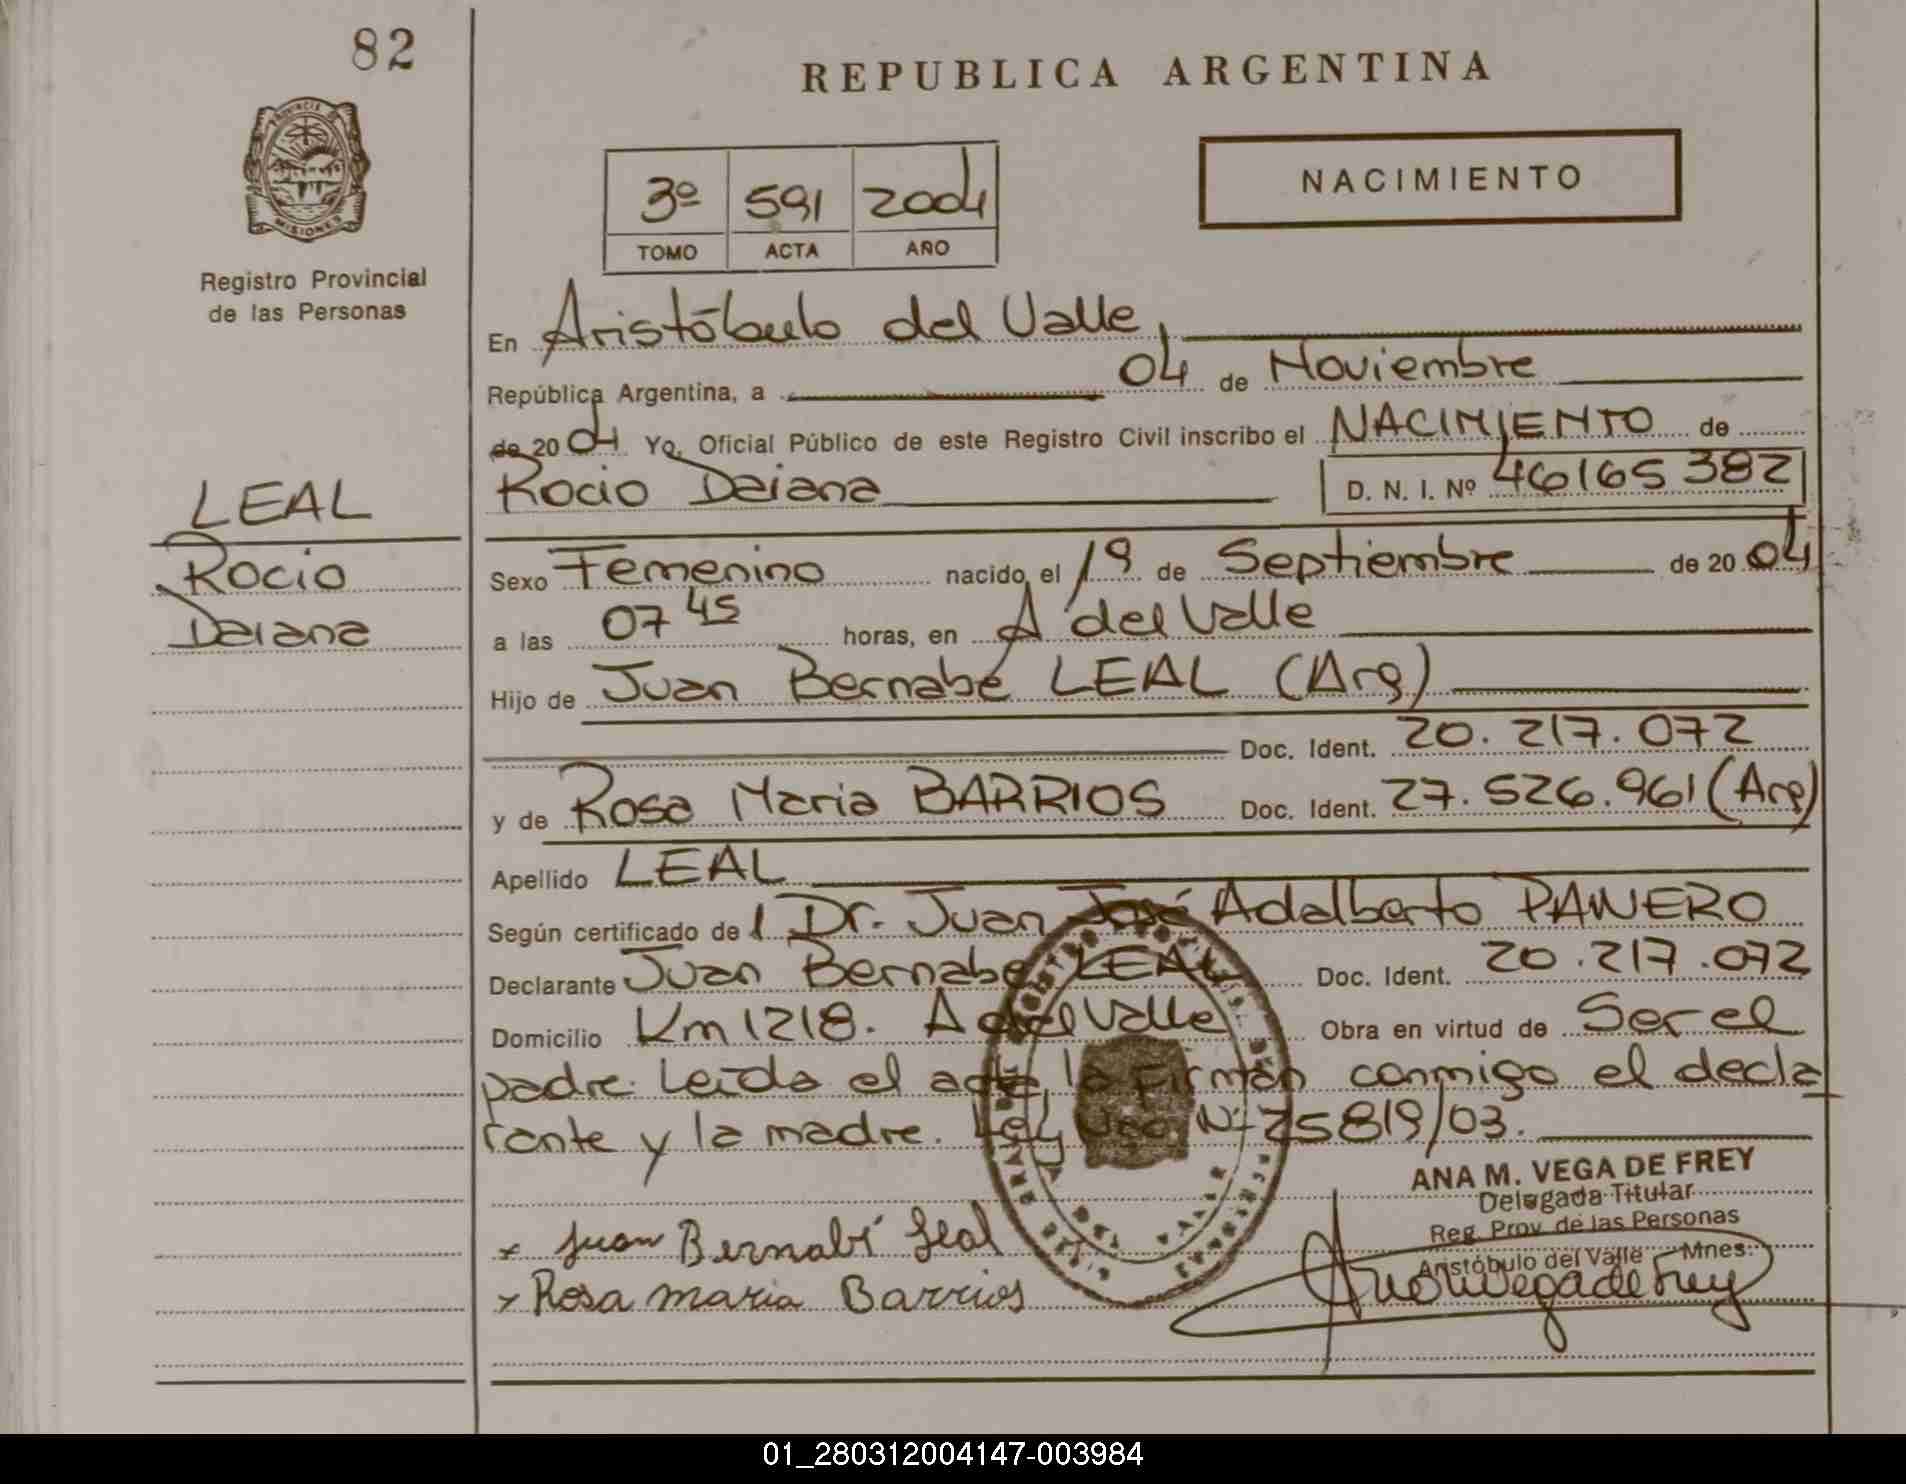 82
REPUBLICA ARGENTINA
PROVINCIA D
MISIONES
Registro Provincial
de las Personas
NACIMIENTO
3º 591 2004
TOMO ACTA AÑO
En Aristóbulo del Valle,
República Argentina, a 04 de Noviembre
de 20 04 Yo, Oficial Público de este Registro Civil inscribo el NACIMIENTO de
Rocio Daiana D. N. I. Nº 46165 382
LEAL
Rocio
Daiana
Sexo Femenino nacido el 19 de Septiembre de 20 04
a las 07 45 horas, en A del Valle
Hijo de Juan Bernabé LEAL (Arg)
Doc. Ident. 20.217.072
y de Rosa Maria BARRIOS Doc. Ident. 27.526.961 (Arg)
Apellido LEAL
Según certificado de l Dr. Juan José Adalberto PANERO
Declarante Juan Bernabe LEAL Doc. Ident. 20.217.072
Domicilio Km 1218. A del Valle Obra en virtud de Ser el
padre. Leída el acta, la firman conmigo el decla
rante y la madre. Nº 25819/03.
ANA M. VEGA DE FREY
Delegada Titular
Reg. Prov. de las Personas
Aristóbulo del Valle - Mnes.
x Juan Bernabé Leal
x Rosa maria Barrios
01_280312004147-003984